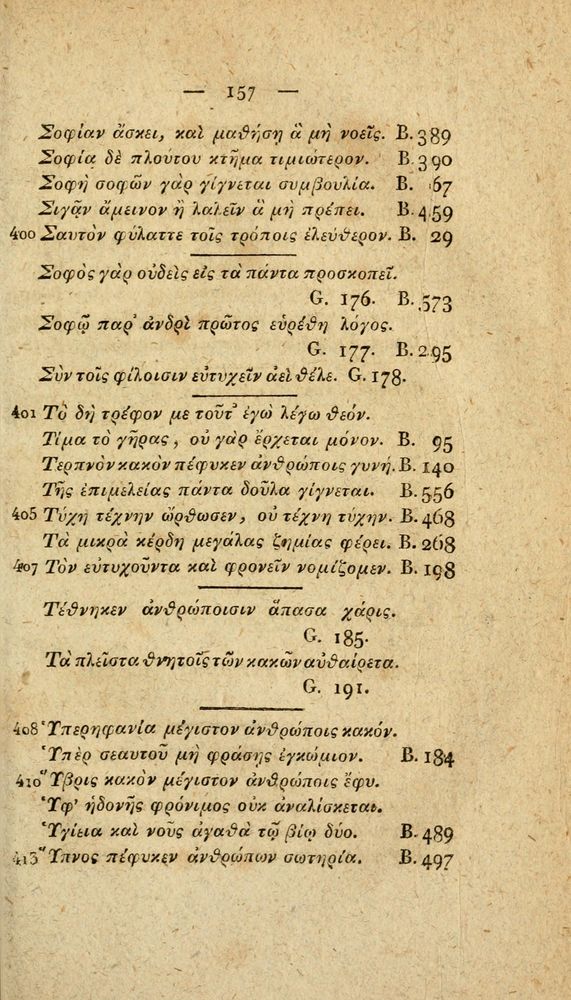 — 157 —
Σοφίαν ἄσκει, καὶ μαθήσῃ ἃ μὴ νοεῖς. B. 389
Σοφία δὲ πλούτου κτῆμα τιμιώτερον. B. 390
Σοφὴ σοφῶν γὰρ γίγνεται συμβουλία. B. 67
Σιγᾷν ἄμεινον ἢ λαλεῖν ἃ μὴ πρέπει. B. 459
400 Σαυτὸν φύλαττε τοῖς τρόποις ἐλεύθερον. B. 29
Σοφὸς γὰρ οὐδεὶς εἰς τὰ πάντα προσκοπεῖ.
G. 176. B. 573
Σοφῷ παρ' ἀνδρὶ πρῶτος εὑρέθη λόγος.
G. 177. B. 295
Σὺν τοῖς φίλοισιν εὐτυχεῖν ἀεὶ θέλε. G. 178.
401 Τὸ δὴ τρέφον με τοῦτ' ἐγὼ λέγω θεόν.
Τίμα τὸ γῆρας, οὐ γὰρ ἔρχεται μόνον. B. 95
Τερπνὸν κακὸν πέφυκεν ἀνθρώποις γυνή. B. 140
Τῆς ἐπιμελείας πάντα δοῦλα γίγνεται. B. 556
405 Τύχη τέχνην ὤρθωσεν, οὐ τέχνη τύχην. B. 468
Τὰ μικρὰ κέρδη μεγάλας ζημίας φέρει. B. 268
407 Τὸν εὐτυχοῦντα καὶ φρονεῖν νομίζομεν. B. 198
Τέθνηκεν ἀνθρώποισιν ἅπασα χάρις.
G. 185.
Τὰ πλεῖστα θνητοῖς τῶν κακῶν αὐθαίρετα.
G. 191.
408 Ὑπερηφανία μέγιστον ἀνθρώποις κακόν.
Ὑπὲρ σεαυτοῦ μὴ φράσῃς ἐγκώμιον. B. 184
410 Ὕβρις κακὸν μέγιστον ἀνθρώποις ἔφυ.
Ὑφ' ἡδονῆς φρόνιμος οὐκ ἀναλίσκεται.
Ὑγίεια καὶ νοῦς ἀγαθὰ τῷ βίῳ δύο. B. 489
413 Ὕπνος πέφυκεν ἀνθρώπων σωτηρία. B. 497